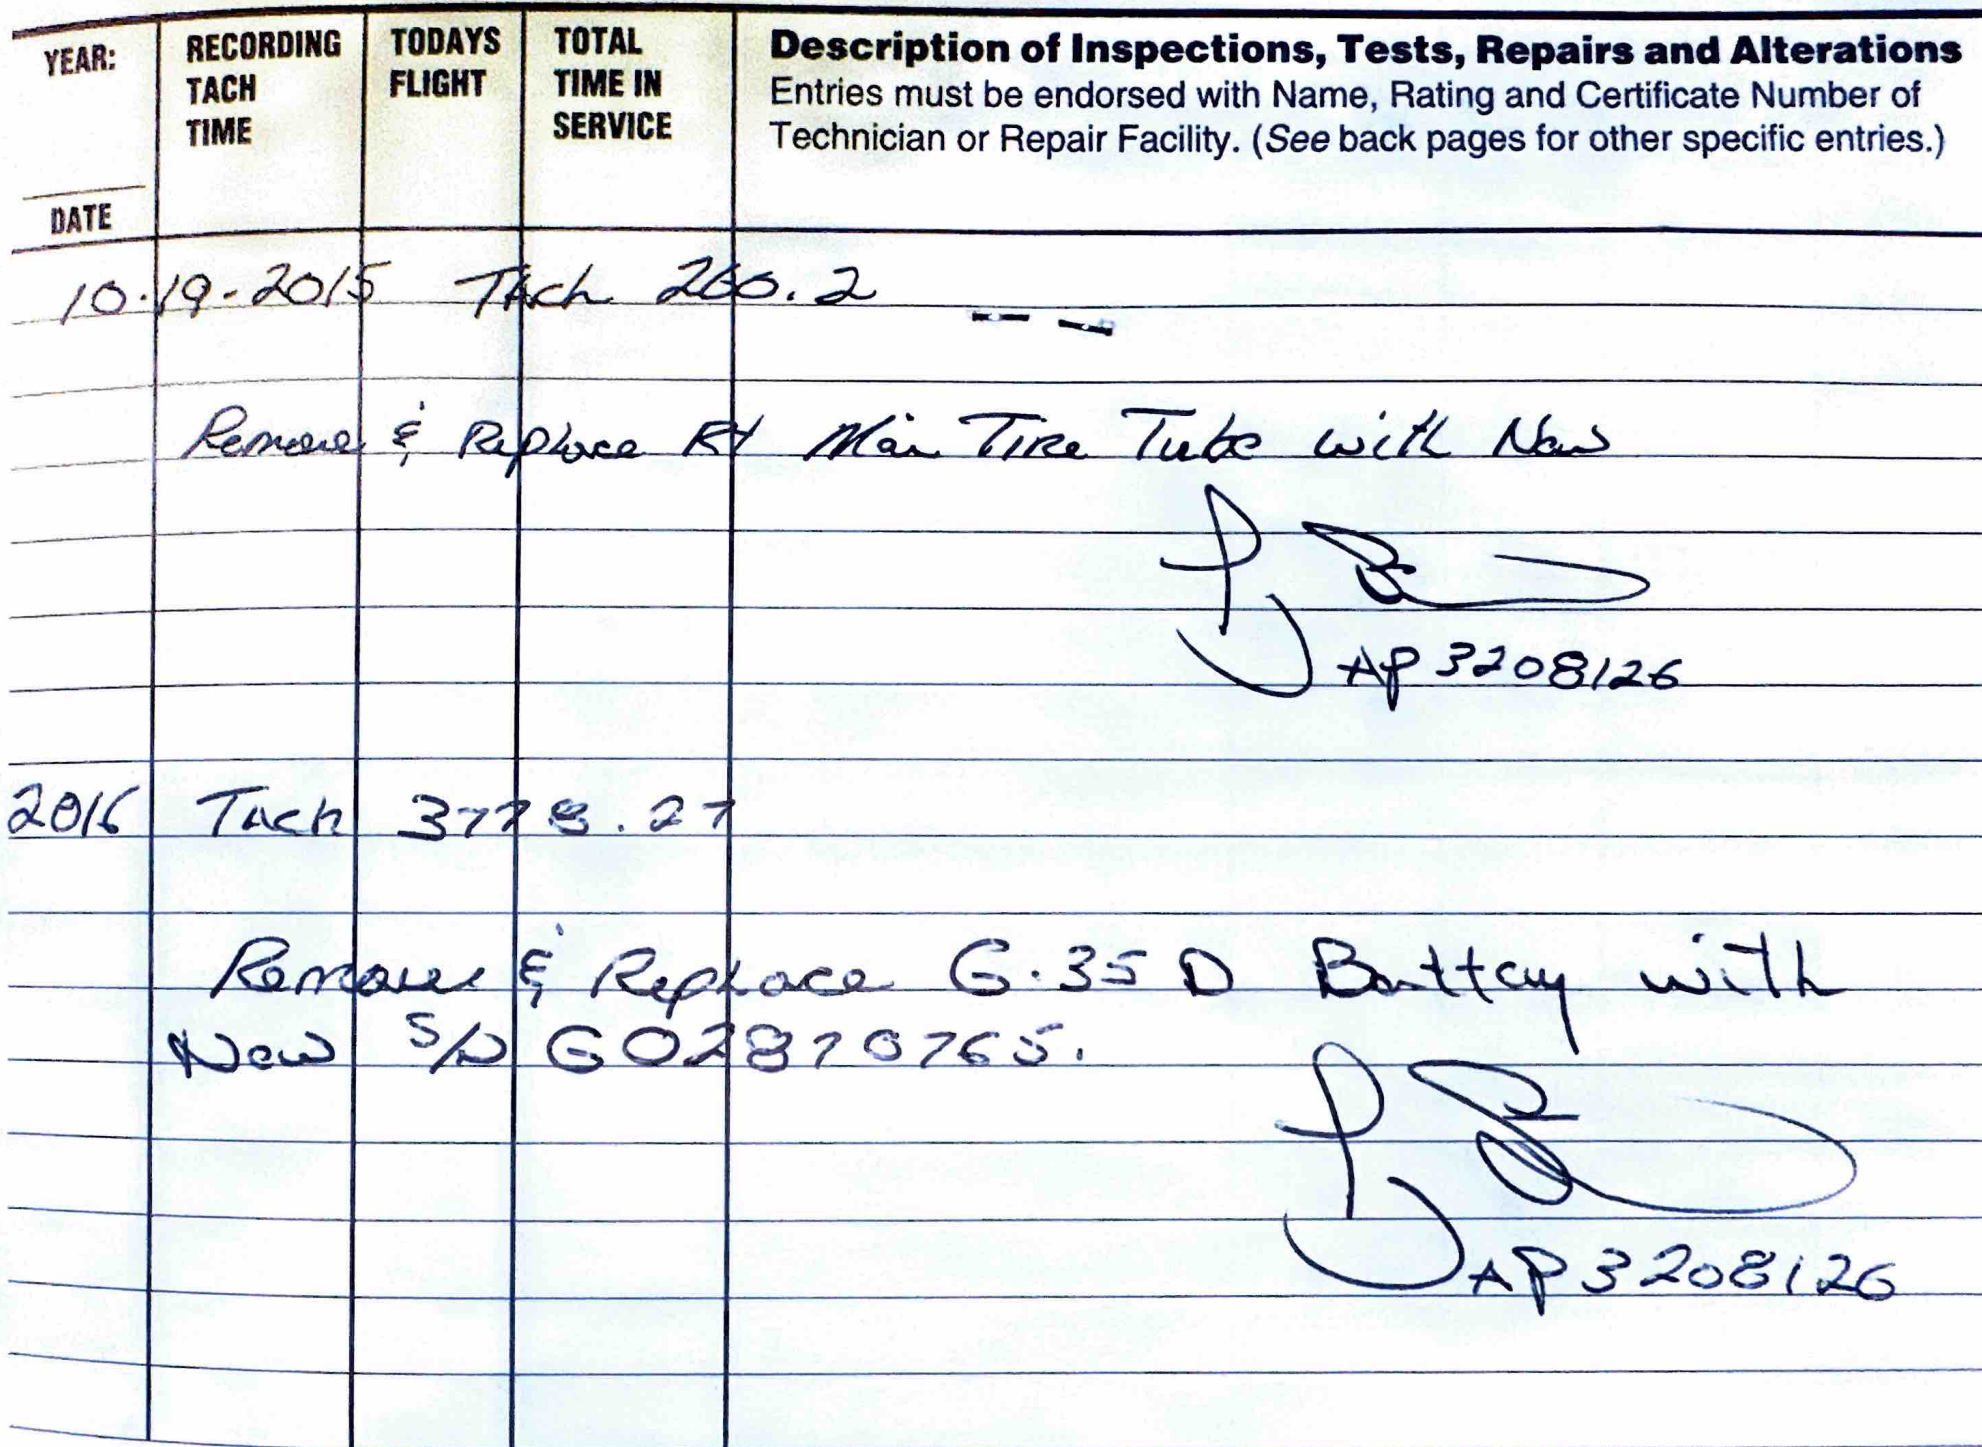 YEAR: RECORDING TACH TIME TODAYS FLIGHT TOTAL TIME IN SERVICE
Description of Inspections, Tests, Repairs and Alterations
Entries must be endorsed with Name, Rating and Certificate Number of
Technician or Repair Facility. (See back pages for other specific entries.)
DATE
10-19-2015 Tach 260.2
Remove & Replace Rt Main Tire Tube with New
AP 3208126
2016 Tach 3778.27
Remove & Replace G-35 D Battery with
New S/N G02870765.
AP 3208126